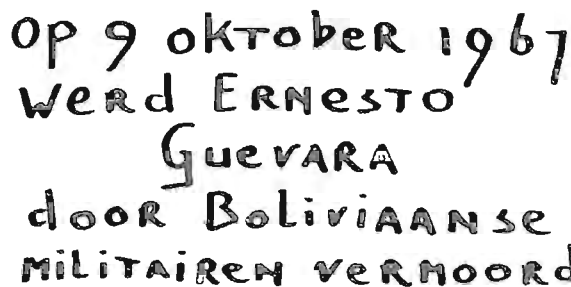 Op 9 oktober 1967
werd Ernesto
Guevara
door Boliviaanse
militairen vermoord